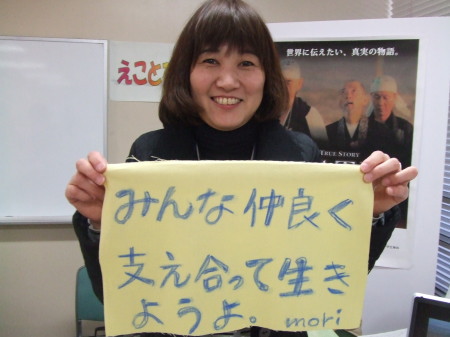 世界に伝えたい、真実の物語。
えこと
TRUE STORY
みんな仲良く
支え合って生き
ようよ。 mori